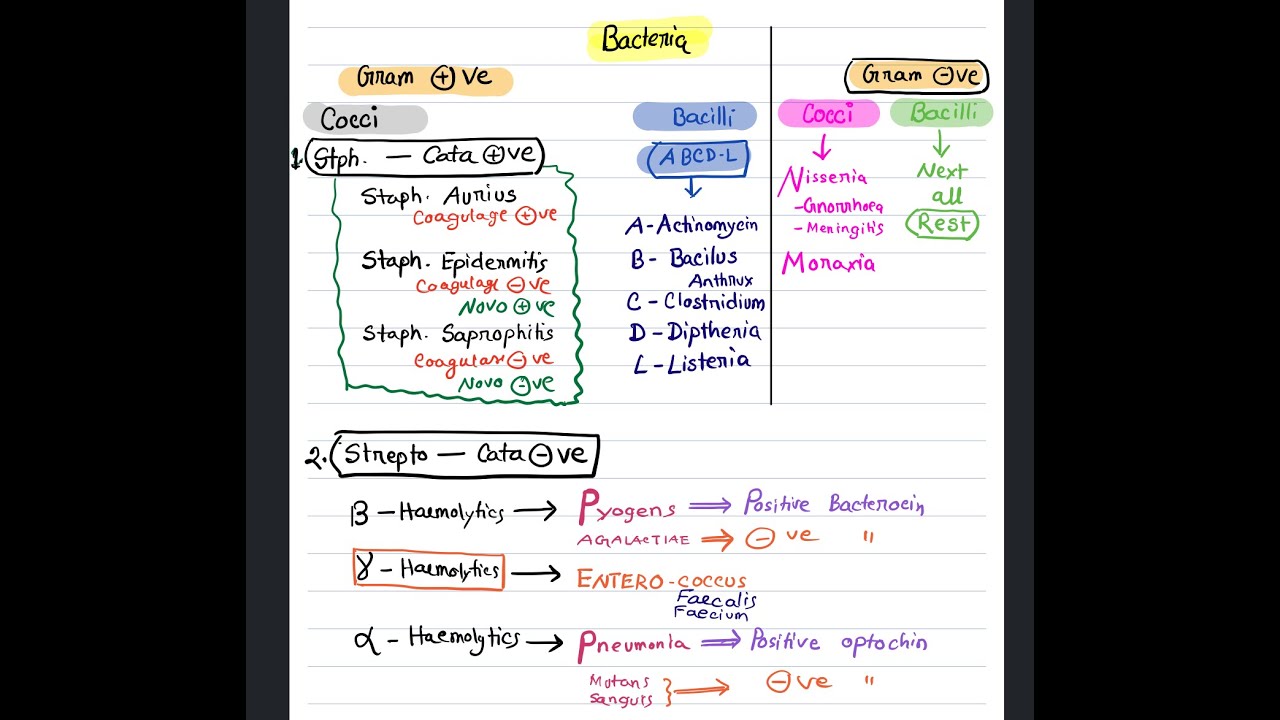 Bacteria
Gram ⊕ve
Cocci
1. Stph. — Cata ⊕ve
Staph. Aurius
Coagulage ⊕ve
Staph. Epidermitis
Coagulage ⊖ve
Novo ⊕ve
Staph. Saprophitis
Coagulase ⊖ve
Novo ⊖ve
Bacilli
ABCD-L
A - Actinomycin
B - Bacilus
Anthrux
C - Clostridium
D - Diptheria
L - Listeria
Gram ⊖ve
Cocci
Nisseria
- Gnorrhoea
- Meningitis
Moraxia
Bacilli
Next
all
Rest
2. Strepto — Cata ⊖ve
β - Haemolytics → Pyogens ⇒ Positive Bacterocin
AGALACTIAE ⇒ ⊖ve "
γ - Haemolytics → ENTERO-COCCUS
Faecalis
Faecium
α - Haemolytics → Pneumonia ⇒ Positive optochin
Mutans
Sanguis } ⇒ ⊖ve "